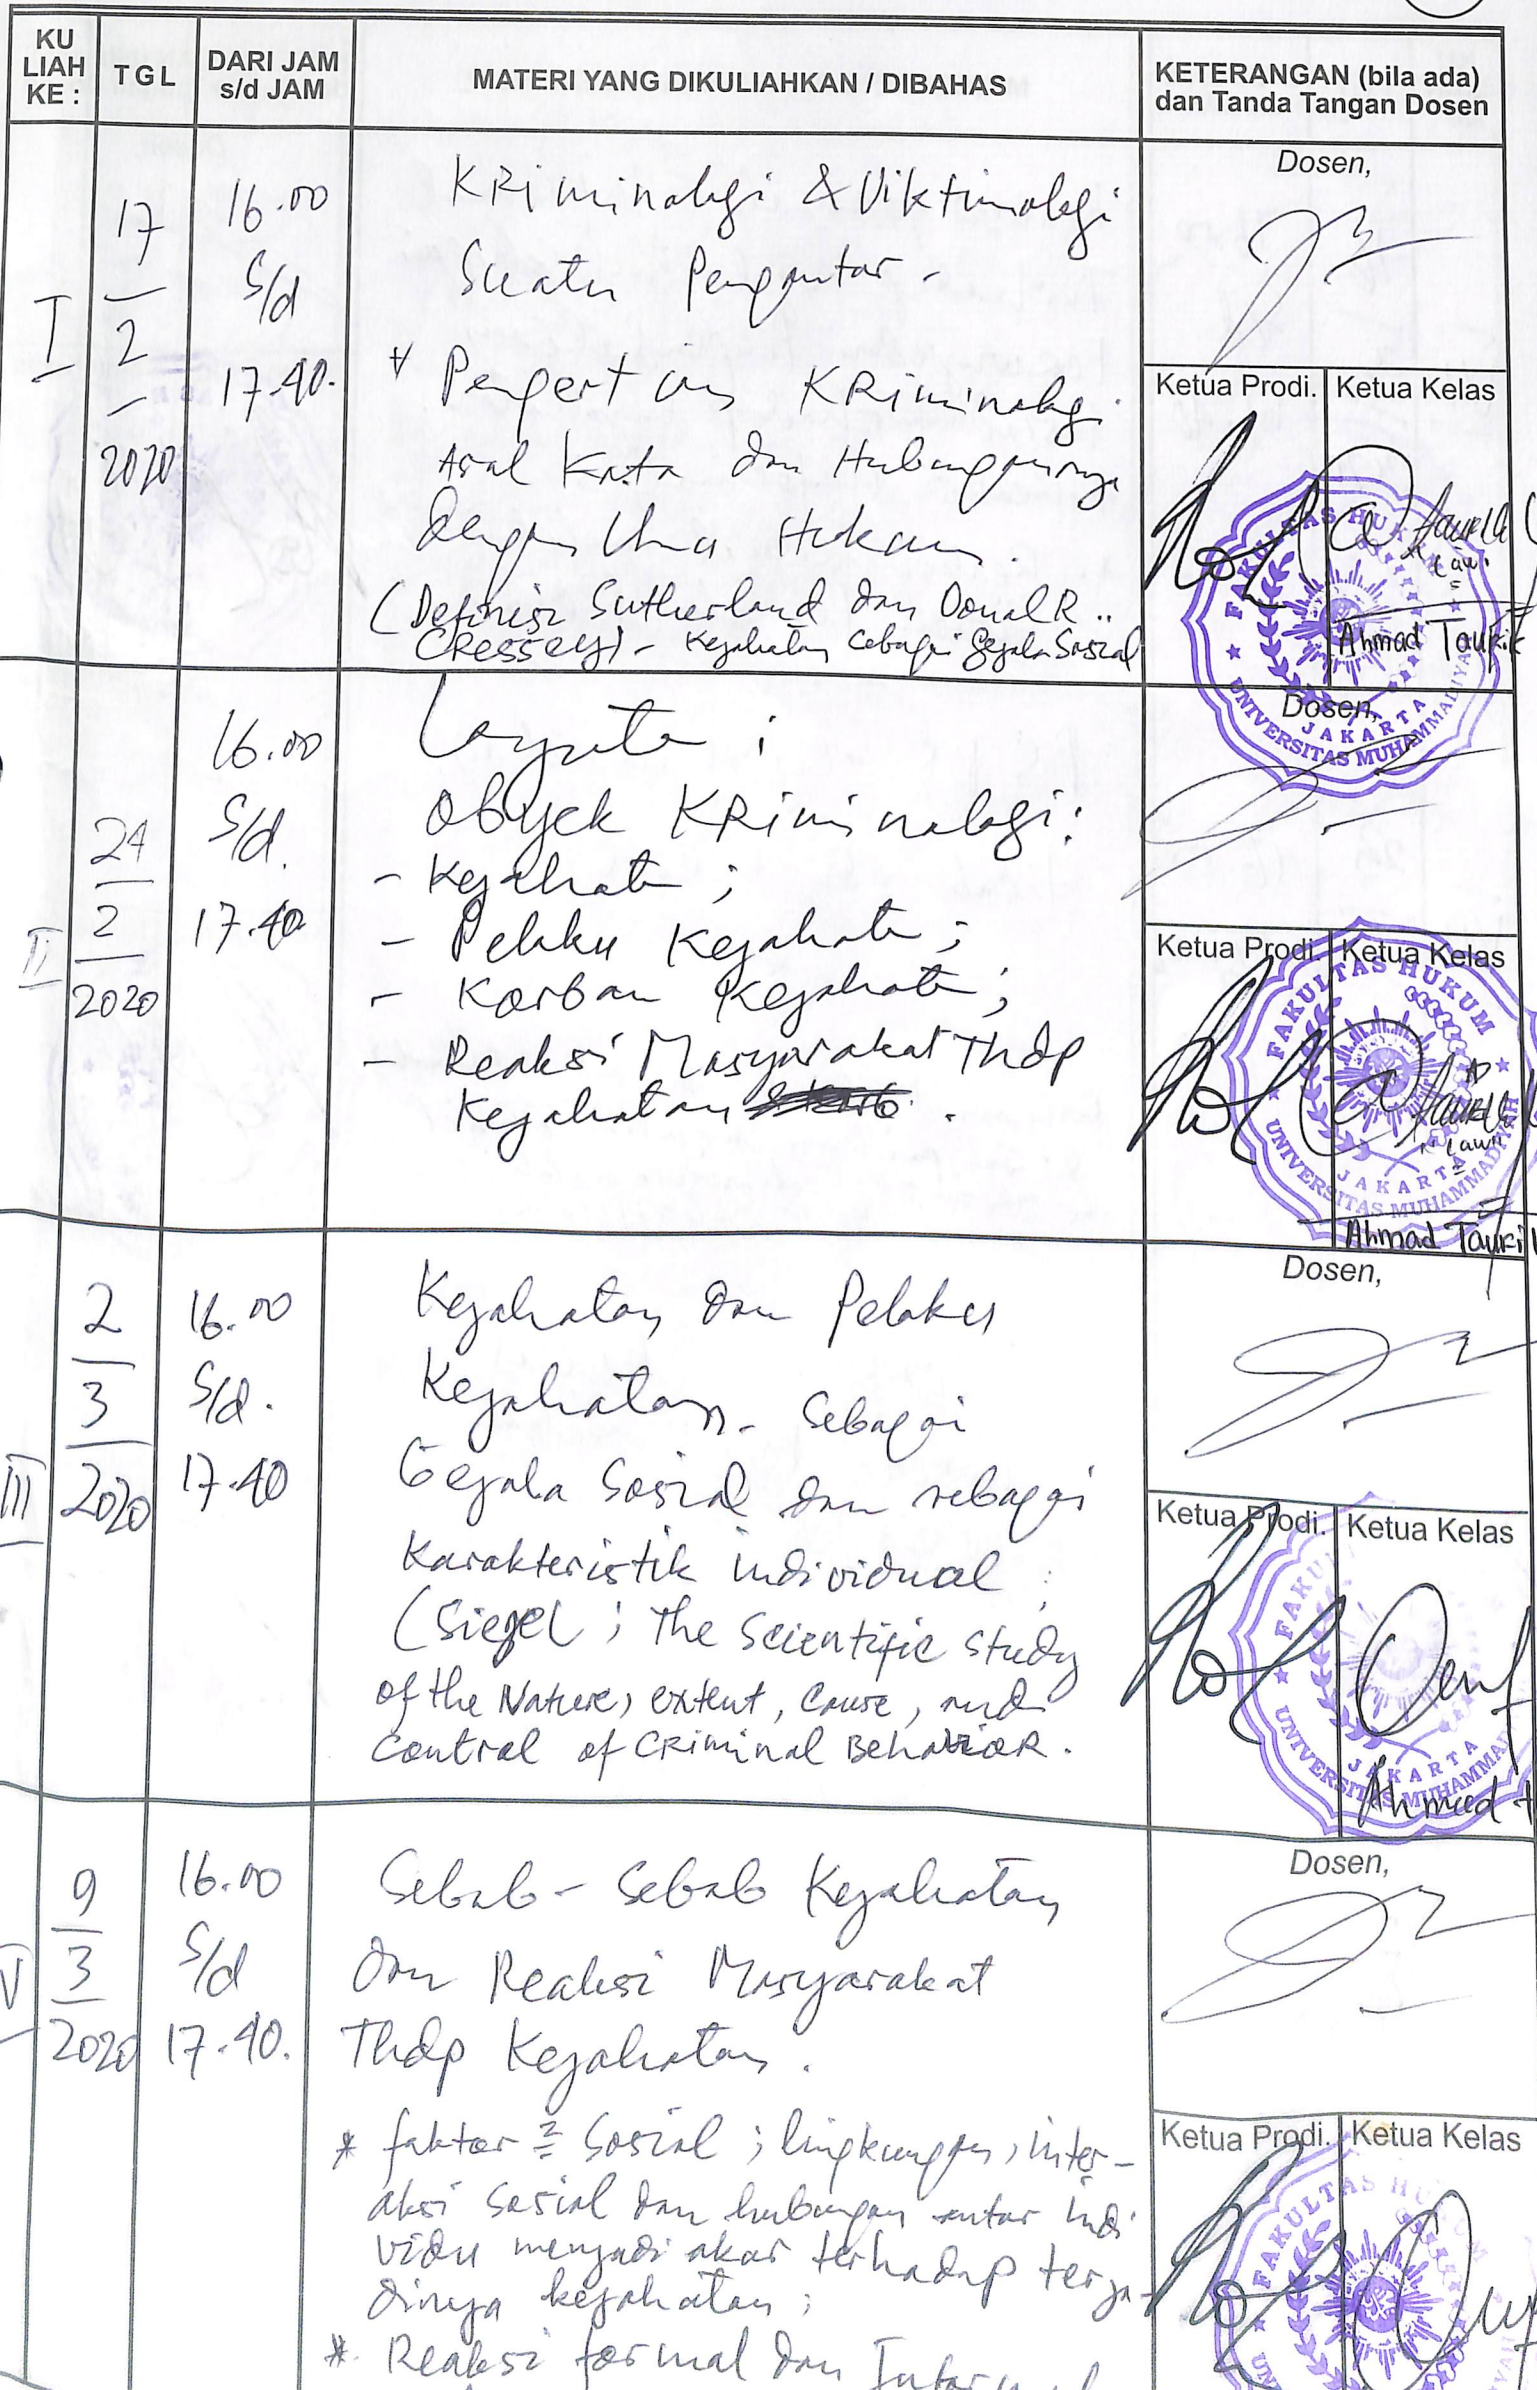 KU LIAH KE :
TGL
DARI JAM s/d JAM
MATERI YANG DIKULIAHKAN / DIBAHAS
KETERANGAN (bila ada) dan Tanda Tangan Dosen
I
17
2
2020
16.00
s/d
17.40.
Kriminologi & Viktimologi
Suatu Pengantar -
* Pengertian Kriminologi
Asal Kata dan Hubungannya
dengan Ilmu Hukum.
(Definisi Sutherland dan Donal R..
Cressey) - Kejahatan sebagai Gejala Sosial
Dosen,
Ketua Prodi.
Ketua Kelas
FAKULTAS HUKUM
JAKARTA
UNIVERSITAS MUHAMMADIYAH
Ahmad Taufik
II
24
2
2020
16.00
s/d.
17.40
Lanjutan :
Obyek Kriminologi:
- Kejahatan ;
- Pelaku Kejahatan ;
- Korban Kejahatan ;
- Reaksi Masyarakat Thdp
Kejahatan .
Dosen,
Ketua Prodi.
Ketua Kelas
FAKULTAS HUKUM
JAKARTA
UNIVERSITAS MUHAMMADIYAH
Ahmad Taufik
III
2
3
2020
16.00
s/d.
17.40
Kejahatan dan Pelaku
Kejahatan - Sebagai
Gejala Sosial dan sebagai
Karakteristik individual ;
(Siegel ; The Scientific study
of the Nature, extent, cause, and
control of Criminal Behavior.
Dosen,
Ketua Prodi.
Ketua Kelas
JAKARTA
UNIVERSITAS MUHAMMA
Ahmad
V
9
3
2020
16.00
s/d
17.40.
Sebab - Sebab Kejahatan
dan Reaksi Masyarakat
Thdp Kejahatan .
* faktor2 Sosial ; lingkungan, inter-
aksi sosial dan hubungan antar indi
vidu menjadi akar terhadap terja-
dinya kejahatan ;
* Reaksi formal dan Informal
Dosen,
Ketua Prodi.
Ketua Kelas
FAKULTAS HUKUM